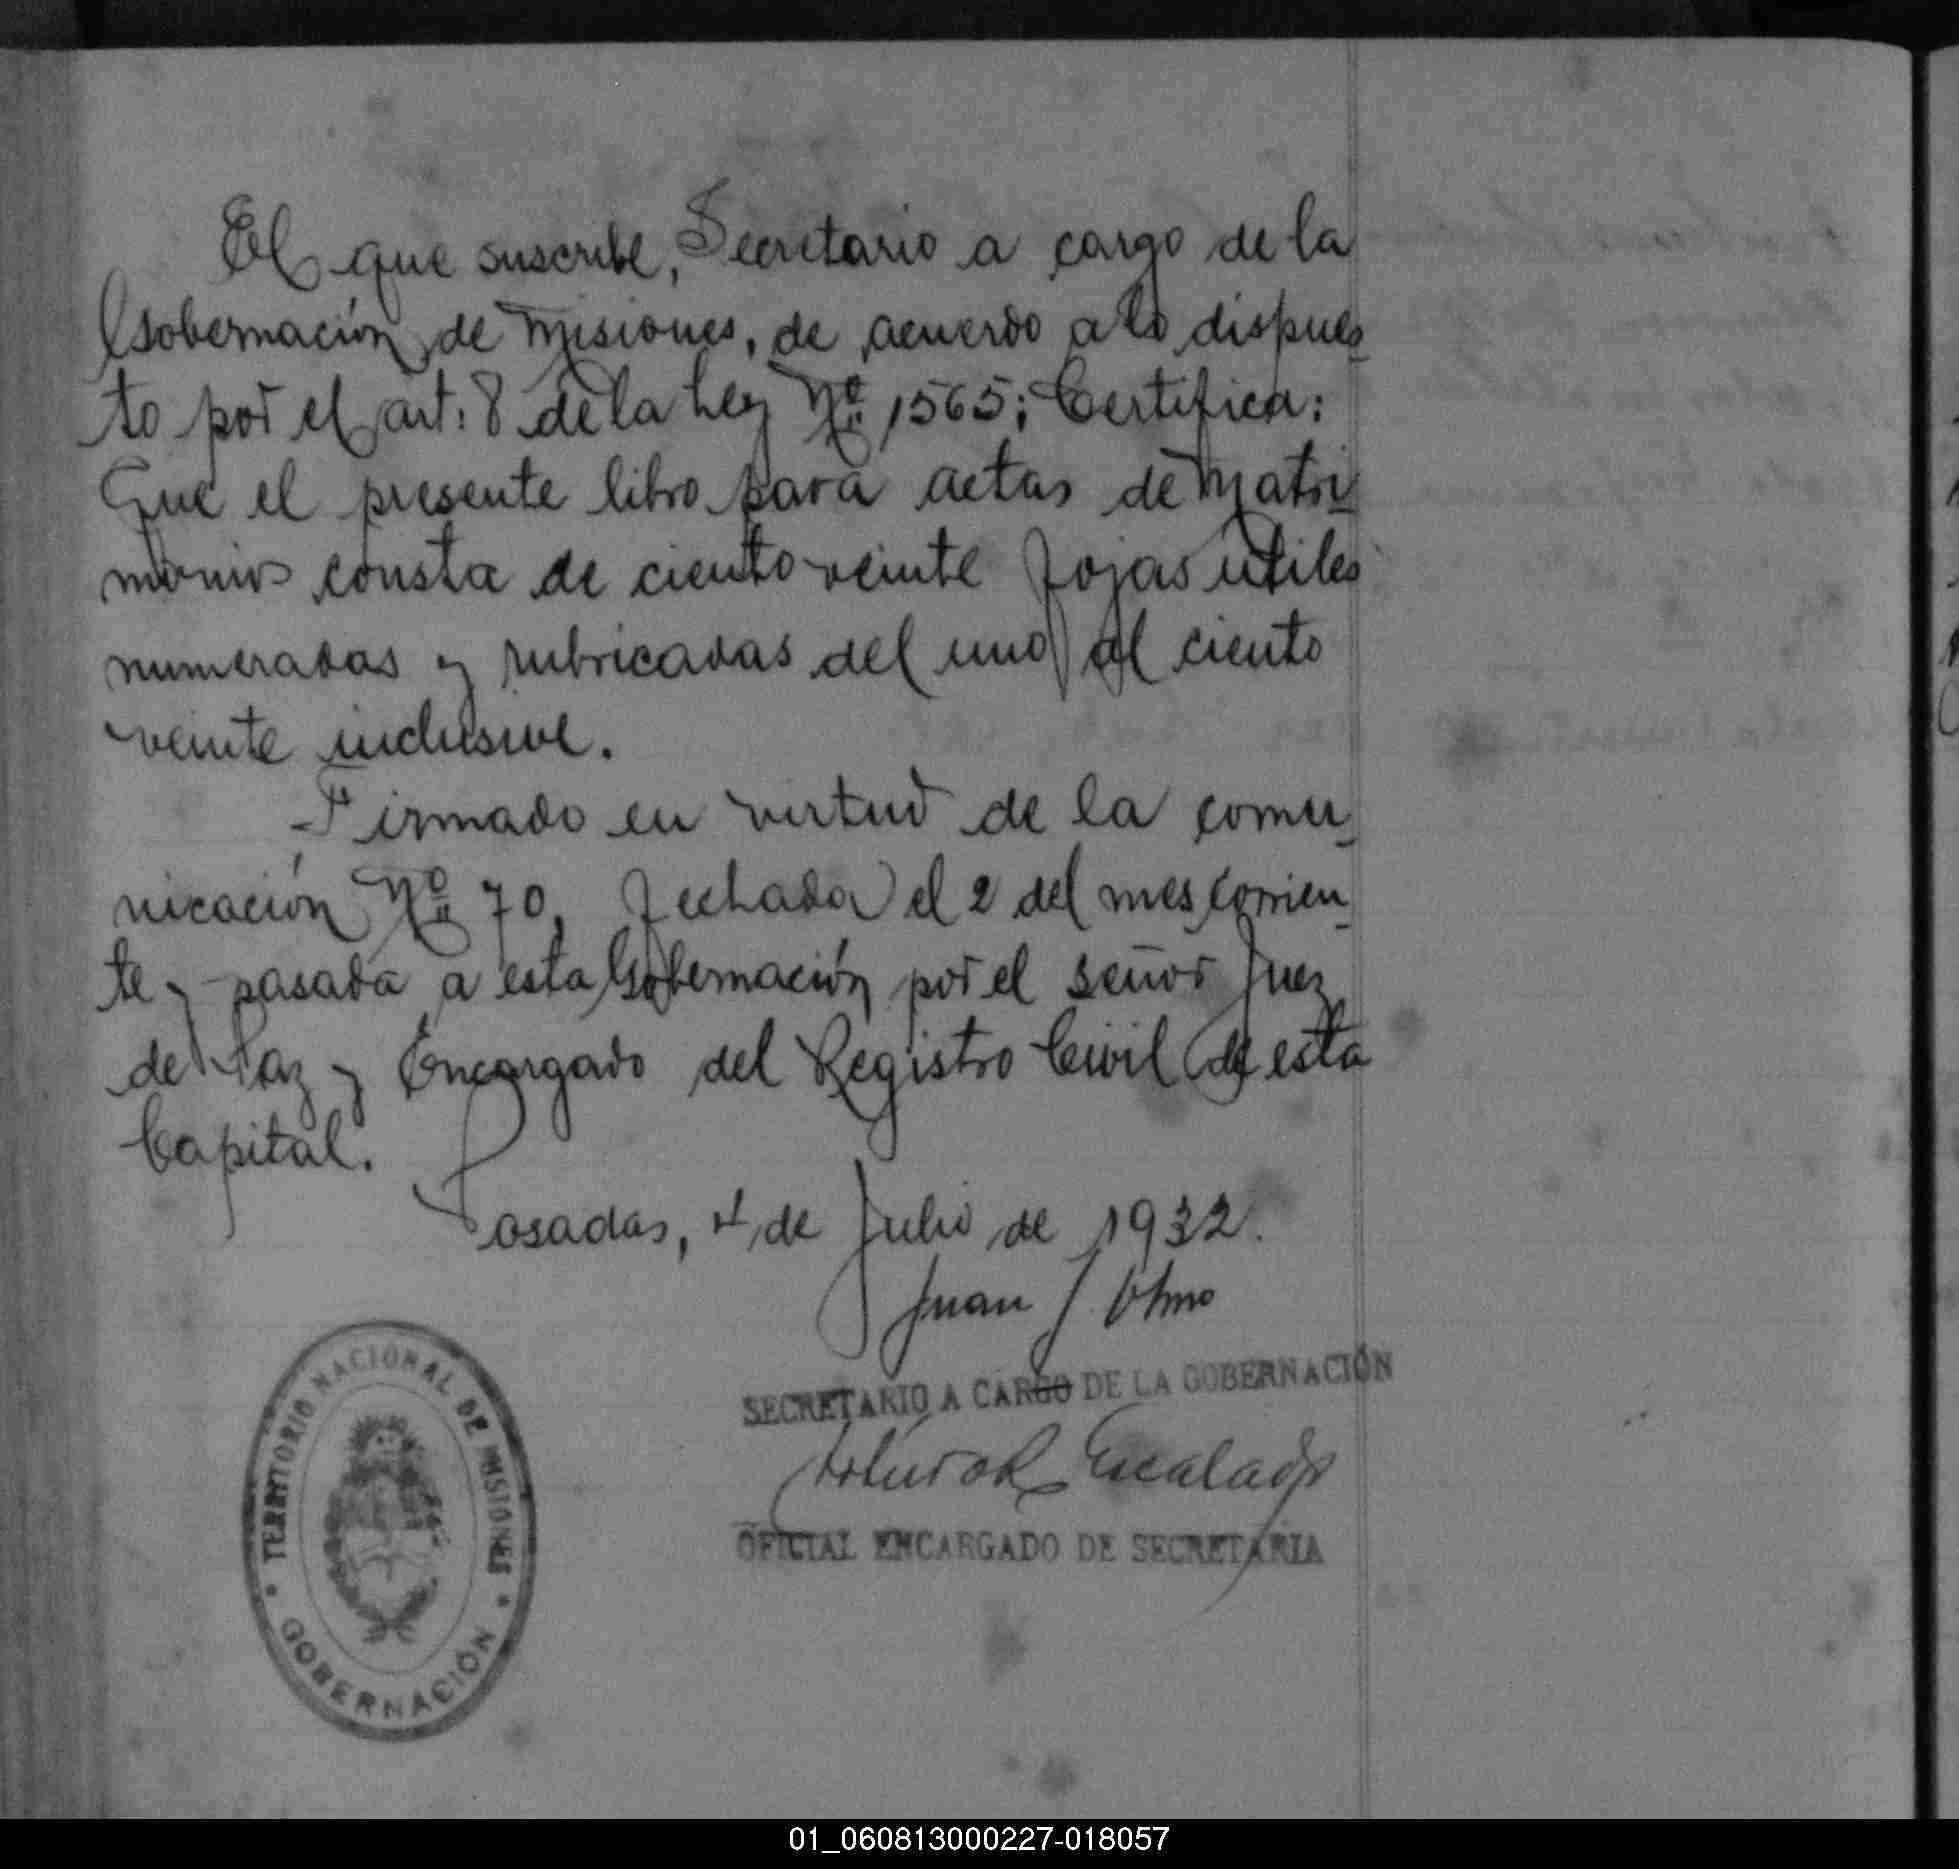 El que suscribe, Secretario a cargo de la
Gobernación de Misiones, de acuerdo a lo dispues-
to por el art: 8 de la Ley Nº 1565; Certifica:
Que el presente libro para actas de Matri-
monios consta de ciento veinte fojas útiles
numeradas y rubricadas del uno al ciento
veinte inclusive.
Firmado en virtud de la comu-
nicación Nº 70, fechada el 2 del mes corrien-
te y pasada a esta Gobernación por el señor Juez
de Paz y Encargado del Registro Civil de esta
Capital.
Posadas, 4 de Julio de 1932.
Juan J.
SECRETARIO A CARGO DE LA GOBERNACIÓN
Escalada
OFICIAL ENCARGADO DE SECRETARIA
TERRITORIO NACIONAL DE MISIONES
GOBERNACIÓN
01_060813000227-018057